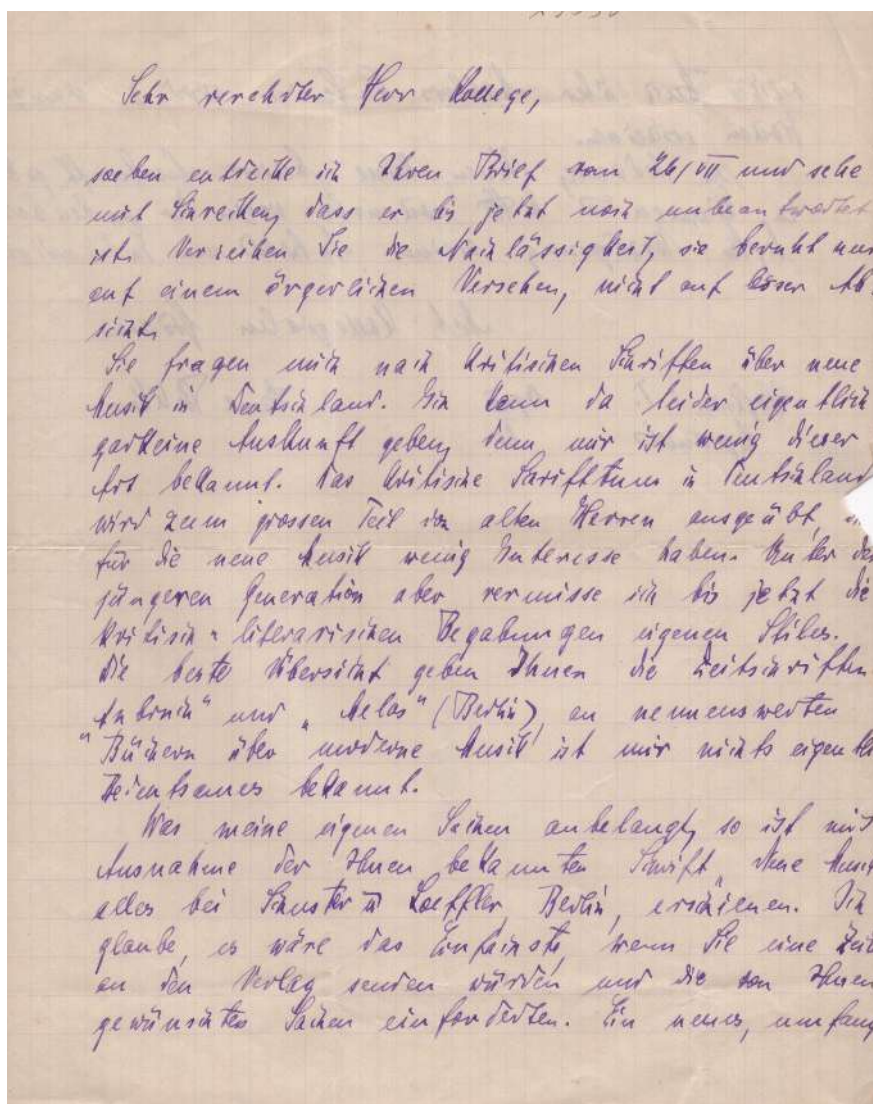 Sehr verehrter Herr Kollege,
soeben entdecke ich Ihren Brief vom 26/VII und sehe
mit Schrecken, dass er bis jetzt noch unbeantwortet
ist. Verzeihen Sie die Nachlässigkeit, sie beruht nur
auf einem ärgerlichen Versehen, nicht auf böser Ab-
sicht.
Sie fragen mich nach kritischen Schriften über neue
Musik in Deutschland. Ich kann da leider eigentlich
garkeine Auskunft geben, denn mir ist wenig dieser
Art bekannt. Das kritische Schrifttum in Deutschland
wird zum grossen Teil von alten Herren ausgeübt,
für die neue Musik wenig Interesse haben. Unter der
jüngeren Generation aber vermisse ich bis jetzt die
kritisch-literarischen Begabungen eigenen Stiles.
Die beste Übersicht geben Ihnen die Zeitschriften
"Anbruch" und "Melos" (Berlin), an nennenswerten
Büchern über moderne Musik ist mir nichts eigentl
Bedeutsames bekannt.
Was meine eigenen Sachen anbelangt, so ist mit
Ausnahme der Ihnen bekannten Schrift "Neue Musik
alles bei Schuster u Loeffler, Berlin, erschienen. Ich
glaube, es wäre das Einfachste, wenn Sie eine Zeile
an den Verlag senden würden und die von Ihnen
gewünschten Sachen einforderten. Ein neues, umfang